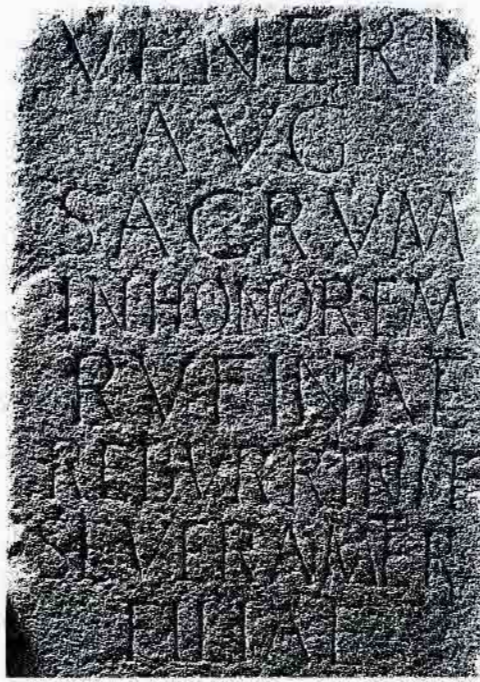 VENERI
AVG
SACRVM
IN HONOREM
RVFINAE
REBVRRINI F
SEVERA MATER
FILIAE